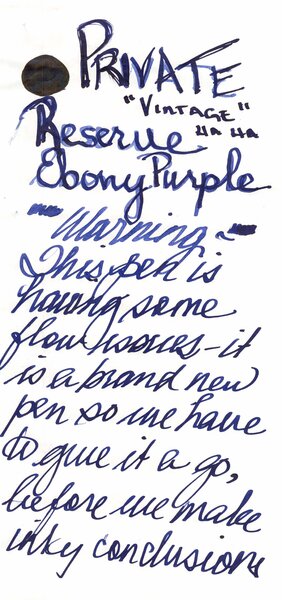 PRIVATE
"VINTAGE"
HA HA
Reserve
Ebony Purple
Warning~
This pen is
having some
flow issues - it
is a brand new
pen so we have
to give it a go,
before we make
inky conclusions